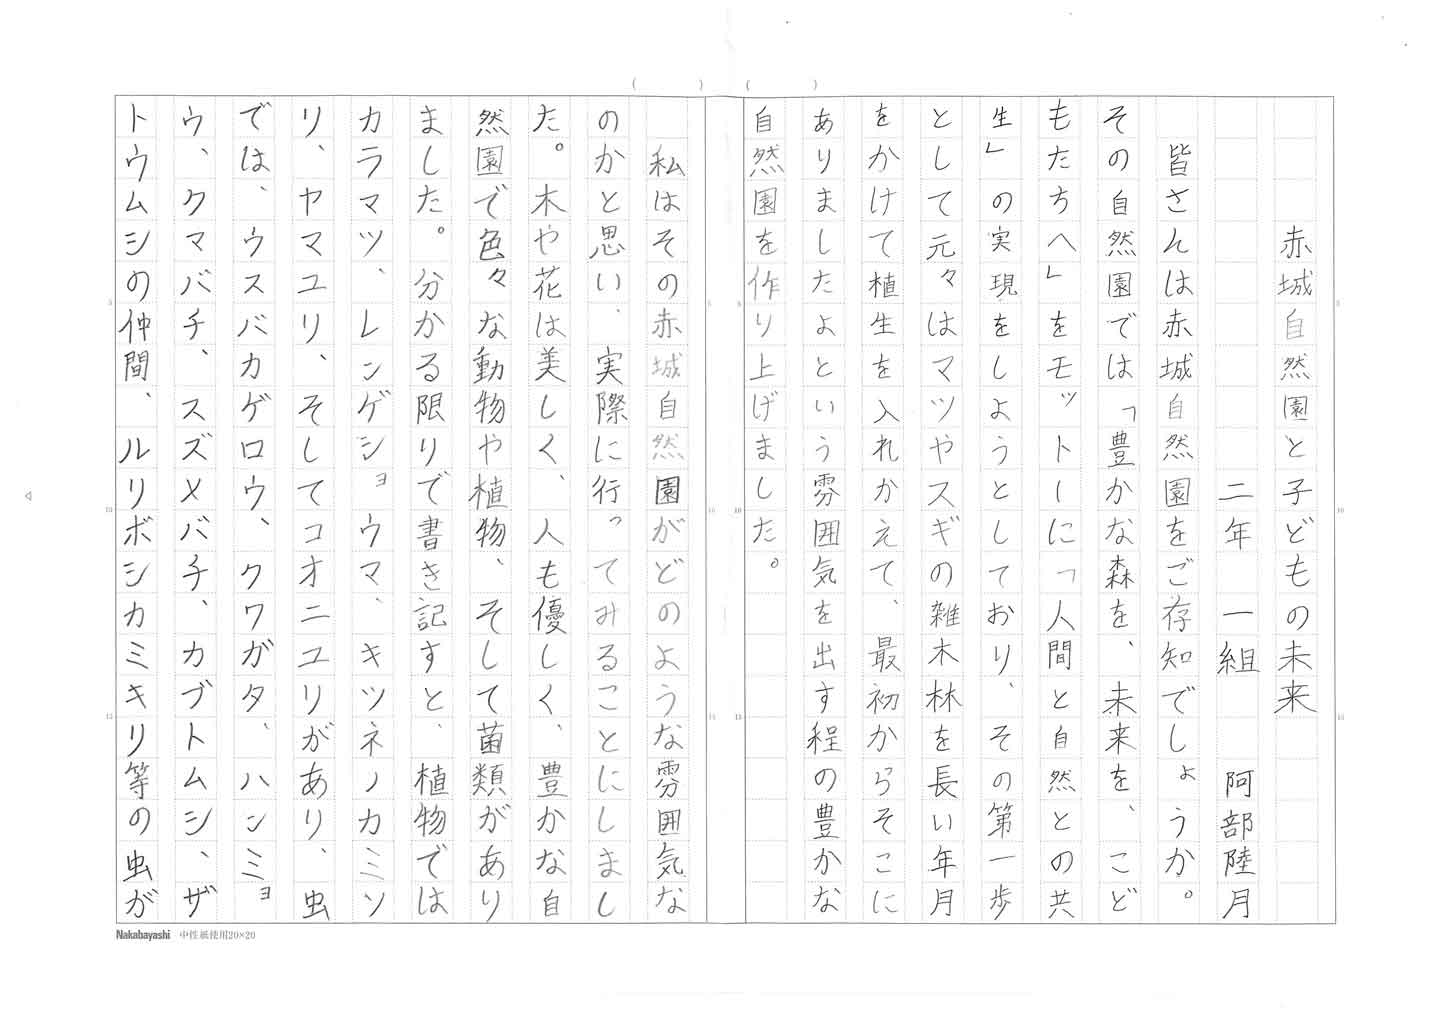 赤城自然園と子どもの未来
二年　一組　　阿部陸月
皆さんは赤城自然園をご存知でしょうか。
その自然園では「豊かな森を、未来を、こど
もたちへ」をモットーに「人間と自然との共
生」の実現をしようとしており、その第一歩
として元々はマツやスギの雑木林を長い年月
をかけて植生を入れかえて、最初からそこに
ありましたよという雰囲気を出す程の豊かな
自然園を作り上げました。
私はその赤城自然園がどのような雰囲気な
のかと思い、実際に行ってみることにしまし
た。木や花は美しく、人も優しく、豊かな自
然園で色々な動物や植物、そして菌類があり
ました。分かる限りで書き記すと、植物では
カラマツ、レンゲショウマ、キツネノカミソ
リ、ヤマユリ、そしてコオニユリがあり、虫
では、ウスバカゲロウ、クワガタ、ハンミョ
ウ、クマバチ、スズメバチ、カブトムシ、ザ
トウムシの仲間、ルリボシカミキリ等の虫が
Nakabayashi 中性紙使用20×20